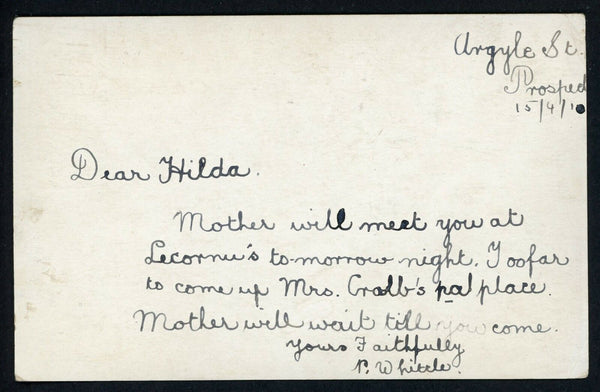 Argyle St.
Prosped
15/4/10
Dear Hilda.
Mother will meet you at
Lecornu's to-morrow night. Toofar
to come up Mrs. Cralb's pal place.
Mother will wait till you come.
Yours Faithfully
P. Whittle.